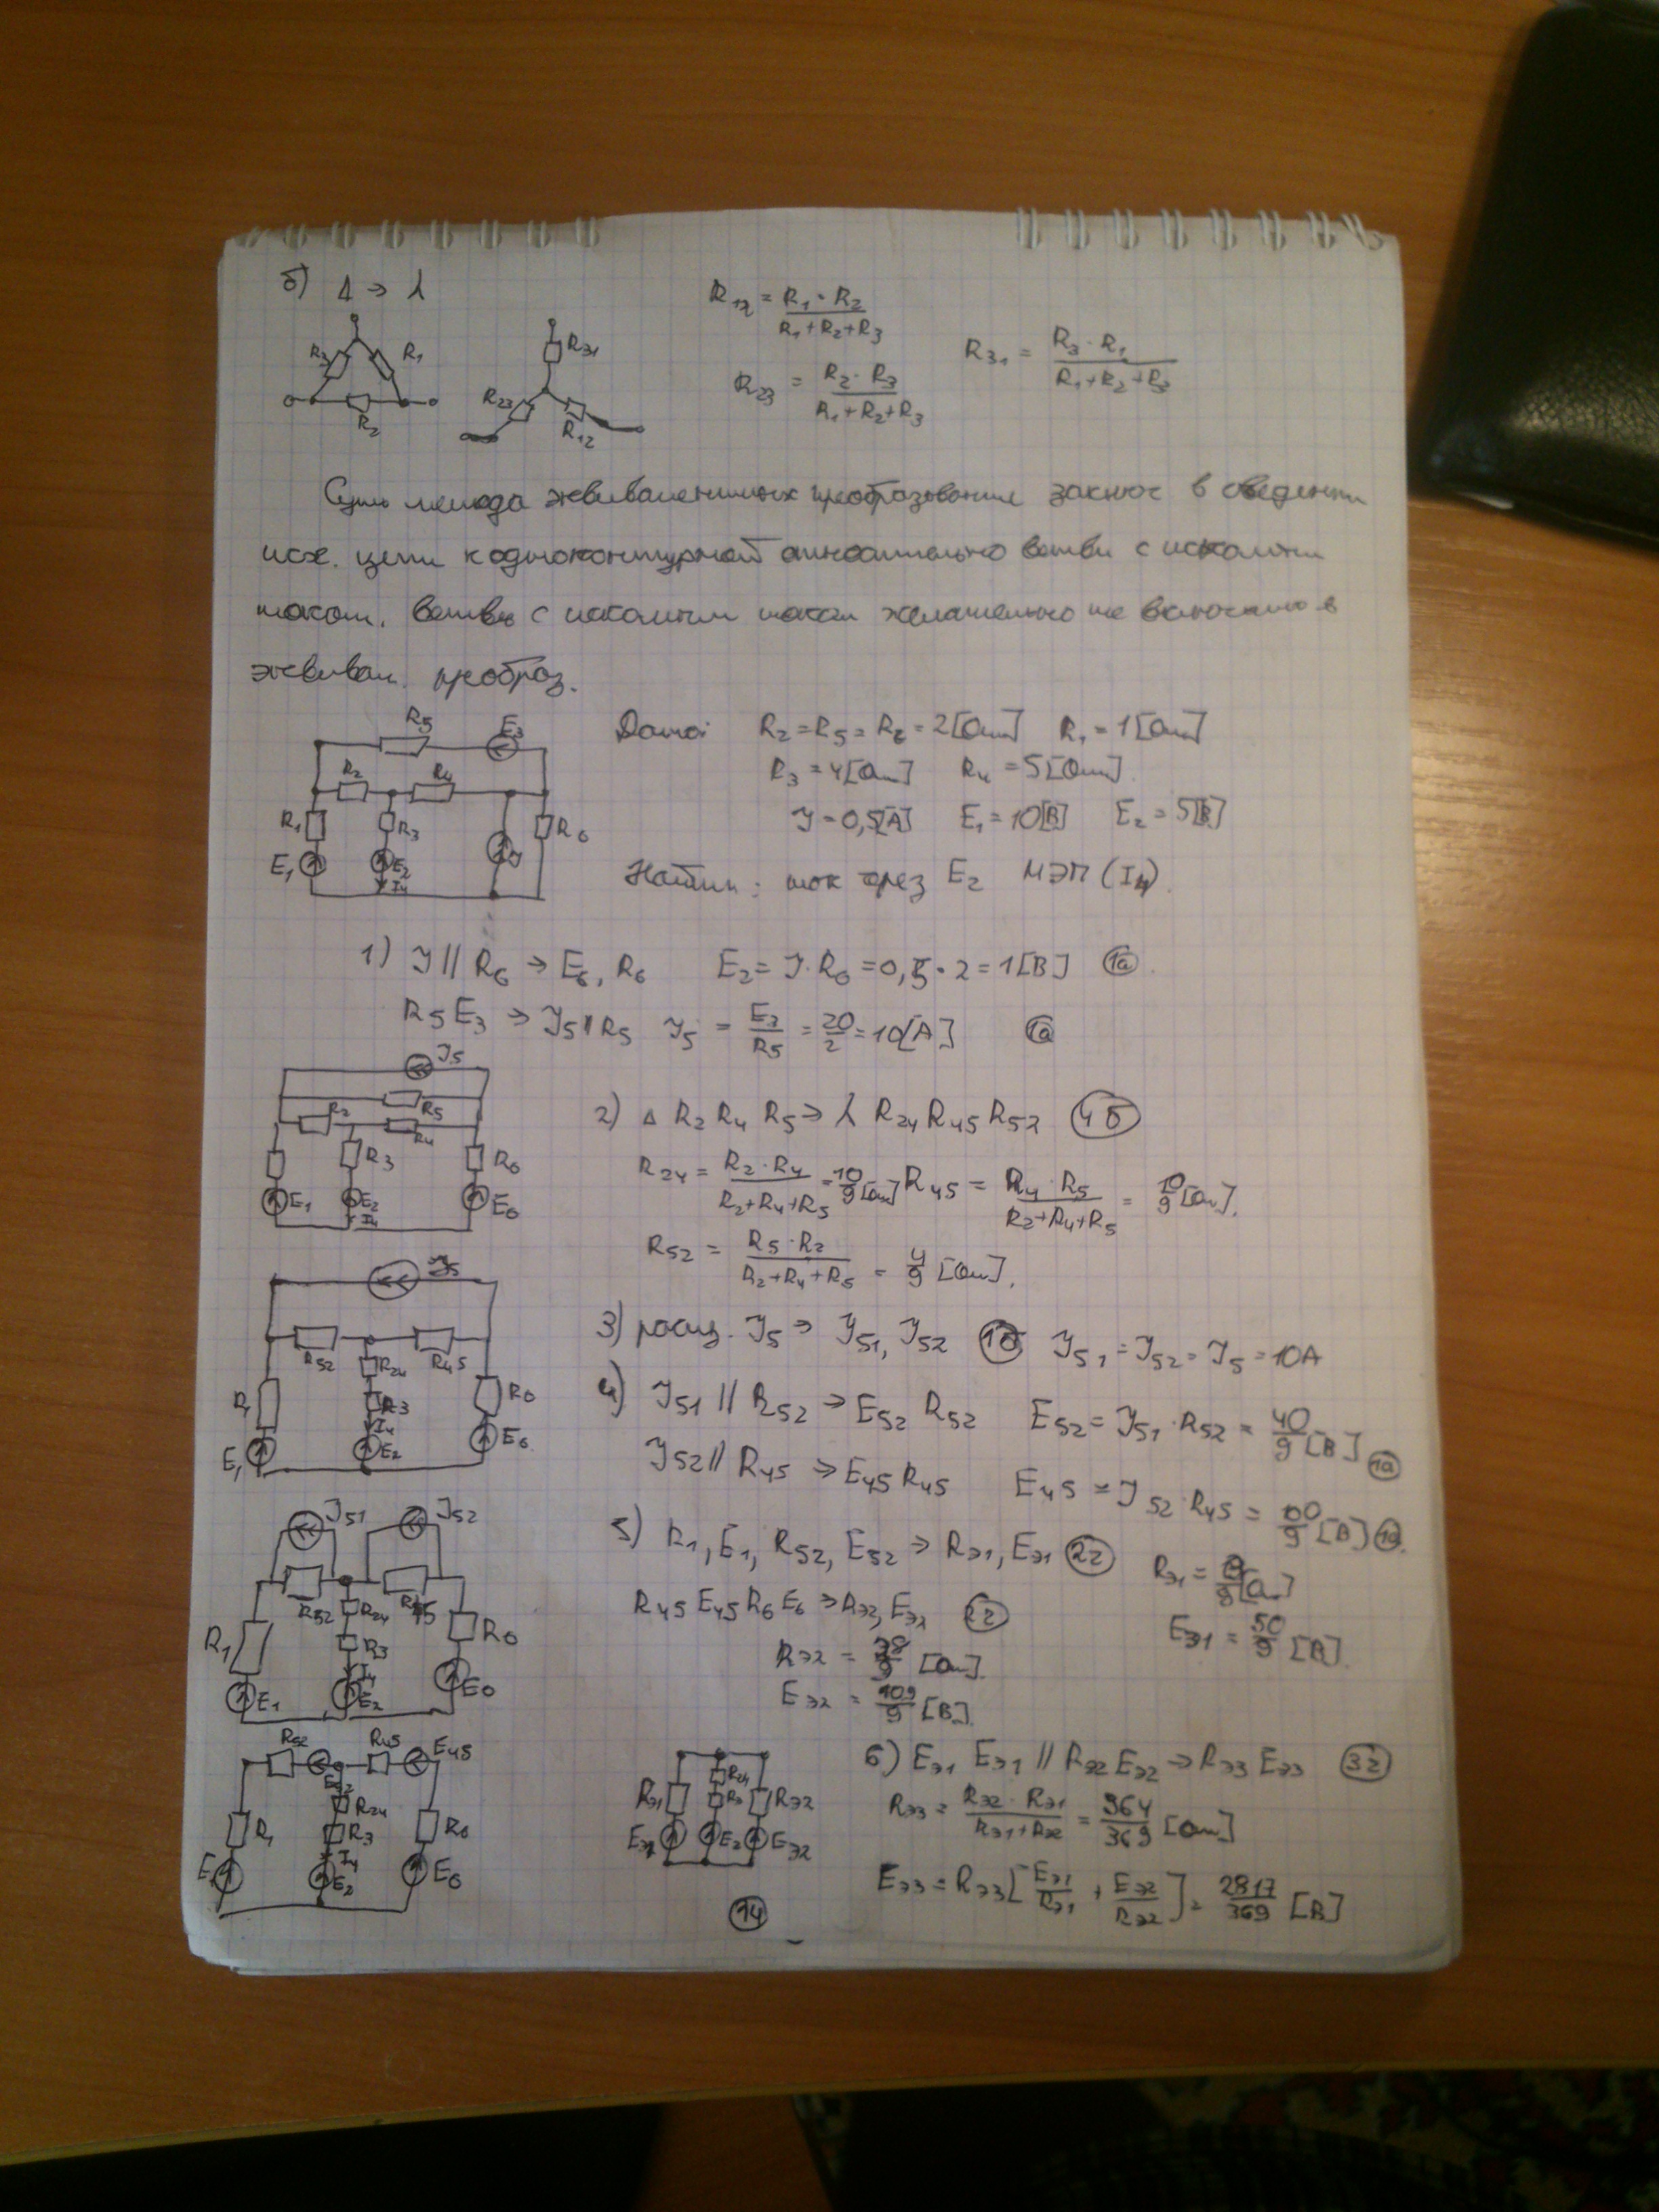 б) Δ → λ
R₃ R₁ R₂
R₃₁ R₂₃ R₁₂
R₁₂ = R₁ · R₂ / R₁+R₂+R₃
R₂₃ = R₂ · R₃ / R₁+R₂+R₃
R₃₁ = R₃ · R₁ / R₁+R₂+R₃
Суть метода эквивалентных преобразований заключ в сведении
исх. цепи к одноконтурной относительно ветви с искомым
током. Ветвь с искомым током желательно не включать в
эквивал. преобраз.
R₅ E₃
R₂ R₄
R₁ R₃ R₆
E₁ E₂ J
I₄
Дано: R₂ = R₅ = R₆ = 2[Ом] R₁ = 1[Ом]
R₃ = 4[Ом] R₄ = 5[Ом]
J = 0,5[А] E₁ = 10[В] E₂ = 5[В]
Найти: ток через E₂ МЭП (I₄).
1) J // R₆ → E₆, R₆ E₂ = J · R₆ = 0,5 · 2 = 1[В] 1а
R₅ E₃ → J₅ // R₅ J₅ = E₃/R₅ = 20/2 = 10[А] 1а
J₅
R₂ R₅
R₄
R₃ R₆
E₁ E₂ E₆
I₄
2) Δ R₂ R₄ R₅ → λ R₂₄ R₄₅ R₅₂ 4б
R₂₄ = R₂ · R₄ / R₂+R₄+R₅ = 10/9 [Ом] R₄₅ = R₄ · R₅ / R₂+R₄+R₅ = 10/9 [Ом].
R₅₂ = R₅ · R₂ / R₂+R₄+R₅ = 4/9 [Ом].
J₅
R₅₂ R₂₄ R₄₅
R₁ R₃ R₆
I₄
E₁ E₂ E₆
3) расщ. J₅ → J₅₁, J₅₂ 1б J₅₁ = J₅₂ = J₅ = 10А
4) J₅₁ // R₅₂ → E₅₂ R₅₂ E₅₂ = J₅₁ · R₅₂ = 40/9 [В] 1а
J₅₂ // R₄₅ → E₄₅ R₄₅ E₄₅ = J₅₂ · R₄₅ = 100/9 [В] 1а.
J₅₁ J₅₂
R₅₂ R₂₄ R₄₅
R₁ R₃ R₆
I₄
E₁ E₂ E₆
5) R₁, E₁, R₅₂, E₅₂ → Rэ₁, Eэ₁ 2г Rэ₁ = 13/9 [Ом]
Eэ₁ = 50/9 [В].
R₄₅ E₄₅ R₆ E₆ → Rэ₂, Eэ₂ 2г
Rэ₂ = 28/9 [Ом].
Eэ₂ = 109/9 [В].
R₅₂ R₄₅ E₄₅
E₅₂
R₂₄
R₁ R₃ R₆
I₄
E₁ E₂ E₆
R₂₄
Rэ₁ R₃ Rэ₂
Eэ₁ E₂ Eэ₂
6) Eэ₁ Eэ₁ // Rэ₂ Eэ₂ → Rэ₃ Eэ₃ 3г
Rэ₃ = Rэ₂ · Rэ₁ / Rэ₁+Rэ₂ = 364/369 [Ом]
Eэ₃ = Rэ₃ [ Eэ₁/Rэ₁ + Eэ₂/Rэ₂ ] = 2817/369 [В]
14